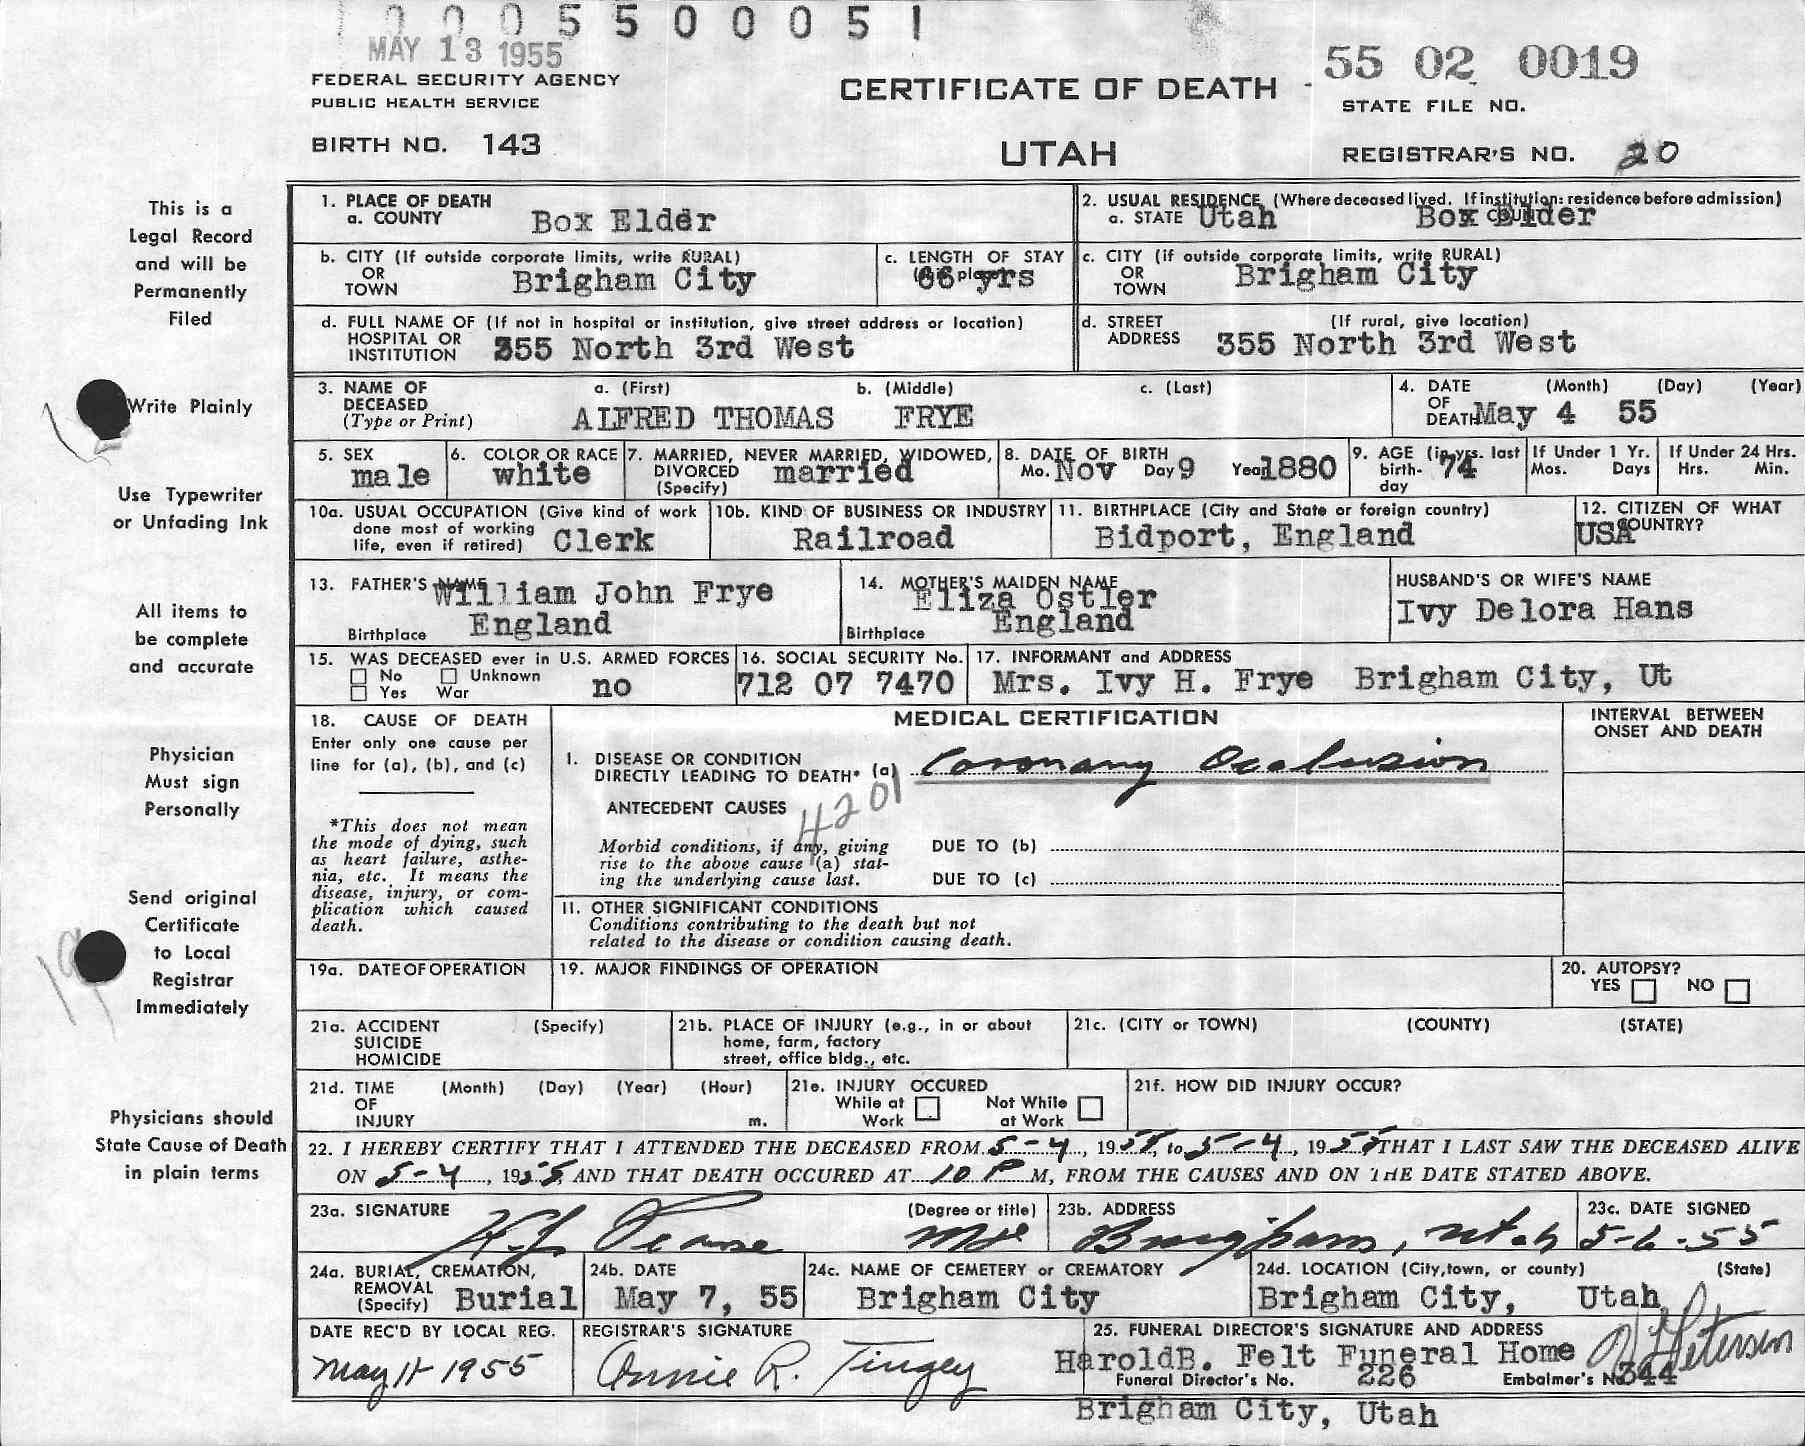 0 0 0 5 5 0 0 0 5 1
MAY 13 1955
55 02 0019
FEDERAL SECURITY AGENCY
PUBLIC HEALTH SERVICE
CERTIFICATE OF DEATH
STATE FILE NO.
BIRTH NO. 143
UTAH
REGISTRAR'S NO. 20
This is a
Legal Record
and will be
Permanently
Filed
Write Plainly
Use Typewriter
or Unfading Ink
All items to
be complete
and accurate
Physician
Must sign
Personally
Send original
Certificate
to Local
Registrar
Immediately
19
Physicians should
State Cause of Death
in plain terms
1. PLACE OF DEATH
a. COUNTY Box Elder
2. USUAL RESIDENCE (Where deceased lived. If institution: residence before admission)
a. STATE Utah COUNTY Box Elder
b. CITY (If outside corporate limits, write RURAL)
OR
TOWN Brigham City
c. LENGTH OF STAY
(in place) 66 yrs
c. CITY (if outside corporate limits, write RURAL)
OR
TOWN Brigham City
d. FULL NAME OF (If not in hospital or institution, give street address or location)
HOSPITAL OR
INSTITUTION 355 North 3rd West
d. STREET (If rural, give location)
ADDRESS 355 North 3rd West
3. NAME OF DECEASED (Type or Print)
a. (First) b. (Middle) c. (Last)
ALFRED THOMAS FRYE
4. DATE OF DEATH (Month) (Day) (Year)
May 4 55
5. SEX
male
6. COLOR OR RACE
white
7. MARRIED, NEVER MARRIED, WIDOWED,
DIVORCED (Specify) married
8. DATE OF BIRTH
Mo. Nov Day 9 Year 1880
9. AGE (in yrs. last birth-day 74
If Under 1 Yr.
Mos. Days
If Under 24 Hrs.
Hrs. Min.
10a. USUAL OCCUPATION (Give kind of work
done most of working
life, even if retired) Clerk
10b. KIND OF BUSINESS OR INDUSTRY
Railroad
11. BIRTHPLACE (City and State or foreign country)
Bidport, England
12. CITIZEN OF WHAT
COUNTRY? USA
13. FATHER'S NAME William John Frye
Birthplace England
14. MOTHER'S MAIDEN NAME
Eliza Ostler
Birthplace England
HUSBAND'S OR WIFE'S NAME
Ivy Delora Hans
15. WAS DECEASED ever in U.S. ARMED FORCES
No Unknown
Yes War no
16. SOCIAL SECURITY No.
712 07 7470
17. INFORMANT and ADDRESS
Mrs. Ivy H. Frye Brigham City, Ut
18. CAUSE OF DEATH
Enter only one cause per
line for (a), (b), and (c)
*This does not mean
the mode of dying, such
as heart failure, asthe-
nia, etc. It means the
disease, injury, or com-
plication which caused
death.
MEDICAL CERTIFICATION
INTERVAL BETWEEN
ONSET AND DEATH
I. DISEASE OR CONDITION
DIRECTLY LEADING TO DEATH* (a) Coronary Occlusion
ANTECEDENT CAUSES 4201
Morbid conditions, if any, giving
rise to the above cause (a) stat-
ing the underlying cause last.
DUE TO (b)
DUE TO (c)
II. OTHER SIGNIFICANT CONDITIONS
Conditions contributing to the death but not
related to the disease or condition causing death.
19a. DATE OF OPERATION
19. MAJOR FINDINGS OF OPERATION
20. AUTOPSY?
YES NO
21a. ACCIDENT (Specify)
SUICIDE
HOMICIDE
21b. PLACE OF INJURY (e.g., in or about
home, farm, factory
street, office bldg., etc.
21c. (CITY or TOWN) (COUNTY) (STATE)
21d. TIME (Month) (Day) (Year) (Hour)
OF
INJURY m.
21e. INJURY OCCURED
While at Work Not While at Work
21f. HOW DID INJURY OCCUR?
22. I HEREBY CERTIFY THAT I ATTENDED THE DECEASED FROM 5-4, 1955, to 5-4, 1955 THAT I LAST SAW THE DECEASED ALIVE
ON 5-4, 1955, AND THAT DEATH OCCURED AT 10 P M, FROM THE CAUSES AND ON THE DATE STATED ABOVE.
23a. SIGNATURE (Degree or title)
Pearse
23b. ADDRESS
Brigham, Utah
23c. DATE SIGNED
5-6-55
24a. BURIAL, CREMATION,
REMOVAL
(Specify) Burial
24b. DATE
May 7, 55
24c. NAME OF CEMETERY or CREMATORY
Brigham City
24d. LOCATION (City, town, or county) (State)
Brigham City, Utah
DATE REC'D BY LOCAL REG.
May 11 1955
REGISTRAR'S SIGNATURE
Annie R. Tingey
25. FUNERAL DIRECTOR'S SIGNATURE AND ADDRESS
HaroldB. Felt Funeral Home Peterson
Funeral Director's No. 226 Embalmer's No. 344
Brigham City, Utah